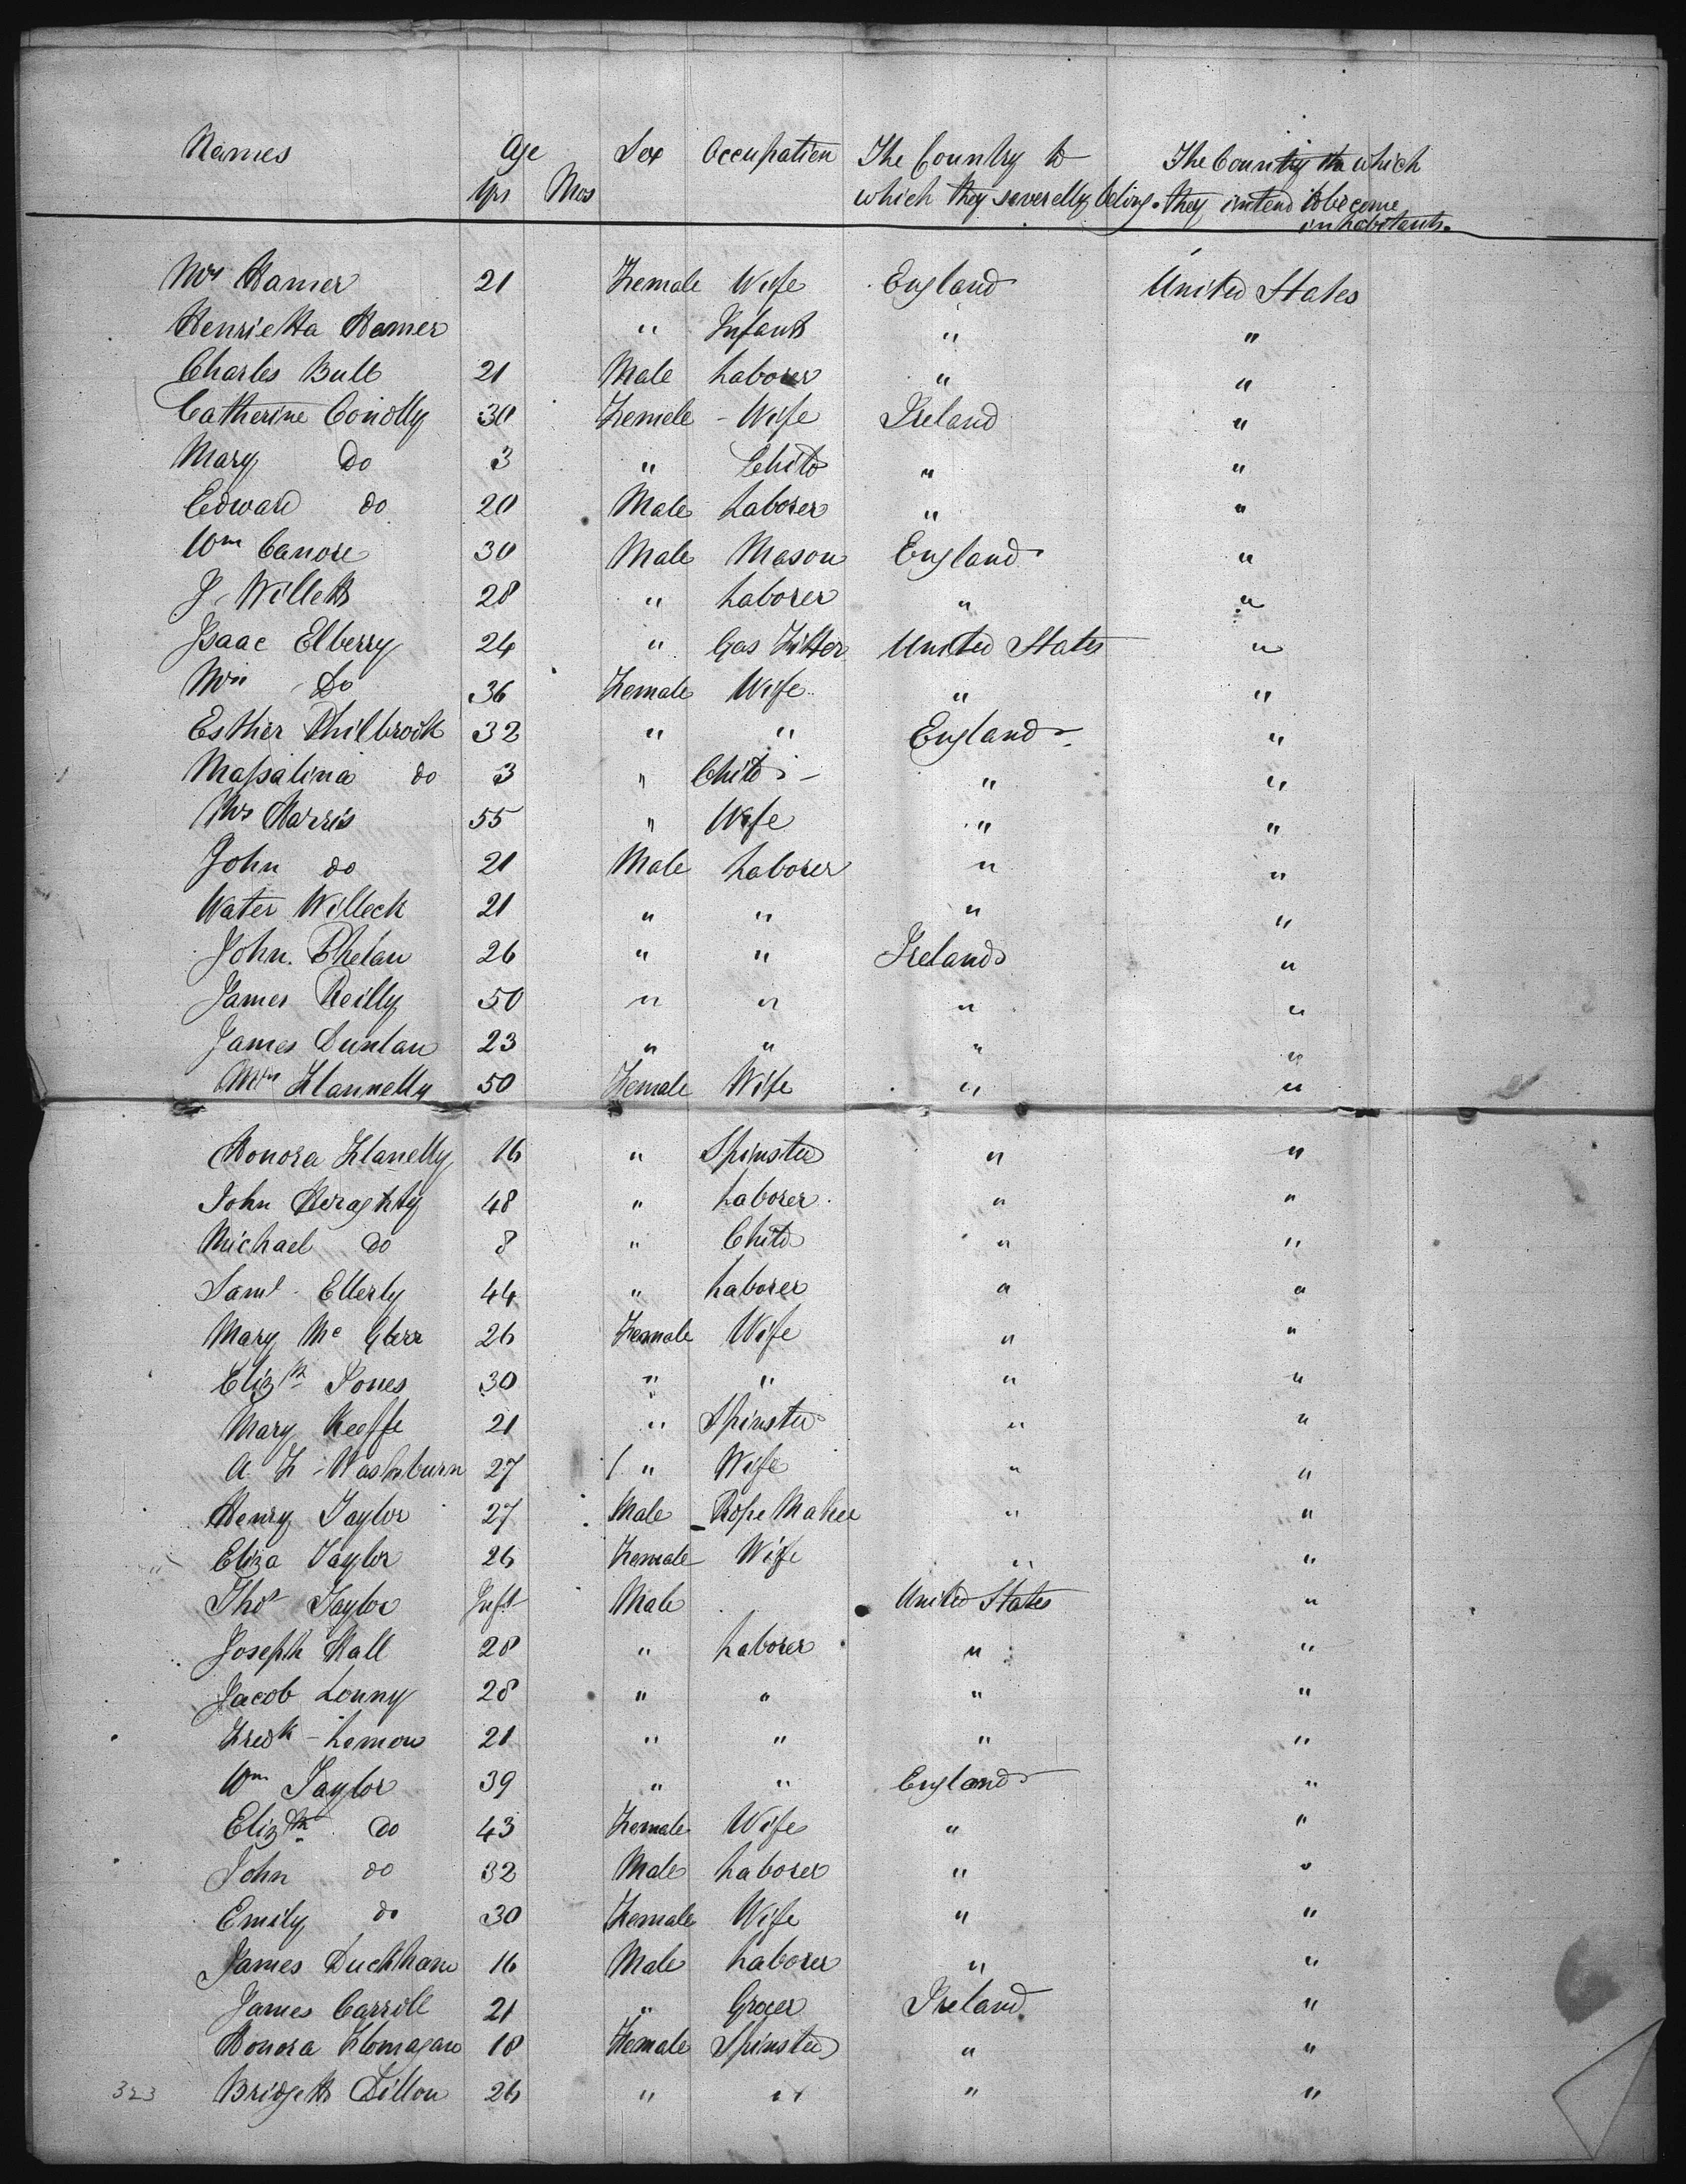 Names Age Sex Occupation The Country to The Country in which
Yrs Mos which they severelly belong. they intend to become
inhabitants.
Mrs Hamer 21 Female Wife England United States
Henrietta Hamer " Infant " "
Charles Bull 21 Male Laborer " "
Catherine Conolly 30 Female - Wife Ireland "
Mary Do 3 " Child " "
Edward do 20 Male Laborer " "
Wm Canore 30 Male Mason England "
J. Willett 28 " Laborer " "
Isaac Elberry 24 " Gas Fitter United States "
Mrs Do 36 Female Wife " "
Esther Philbrook 32 " " England "
Massalina do 3 " Child " "
Mrs Harris 55 " Wife " "
John do 21 Male Laborer " "
Water Willeck 21 " " " "
John Phelan 26 " " Ireland "
James Reilly 50 " " " "
James Dunlan 23 " " " "
Mrs Flannelly 50 Female Wife " "
Honora Flanelly 16 " Spinster " "
John Heraghty 48 " Laborer " "
Michael do 8 " Child " "
Saml Ellerly 44 " Laborer " "
Mary Mc 26 Female Wife " "
Elizth Jones 30 " " " "
Mary Keeffe 21 " Spinster " "
A. F. Washburn 27 " Wife " "
Henry Taylor 27 Male Rope Maker " "
Eliza Taylor 26 Female Wife " "
Thos Taylor Inft Male United States "
Joseph Hall 28 " Laborer " "
Jacob Lonny 28 " " " "
Fredk - Lemon 21 " " " "
Wm Taylor 39 " " England "
Elizth do 43 Female Wife " "
John do 32 Male Laborer " "
Emily do 30 Female Wife " "
James Duckham 16 Male Laborer " "
James Carroll 21 " Grocer Ireland "
Honora 18 Female Spinster " "
323 Bridgett Dillon 26 " " " "